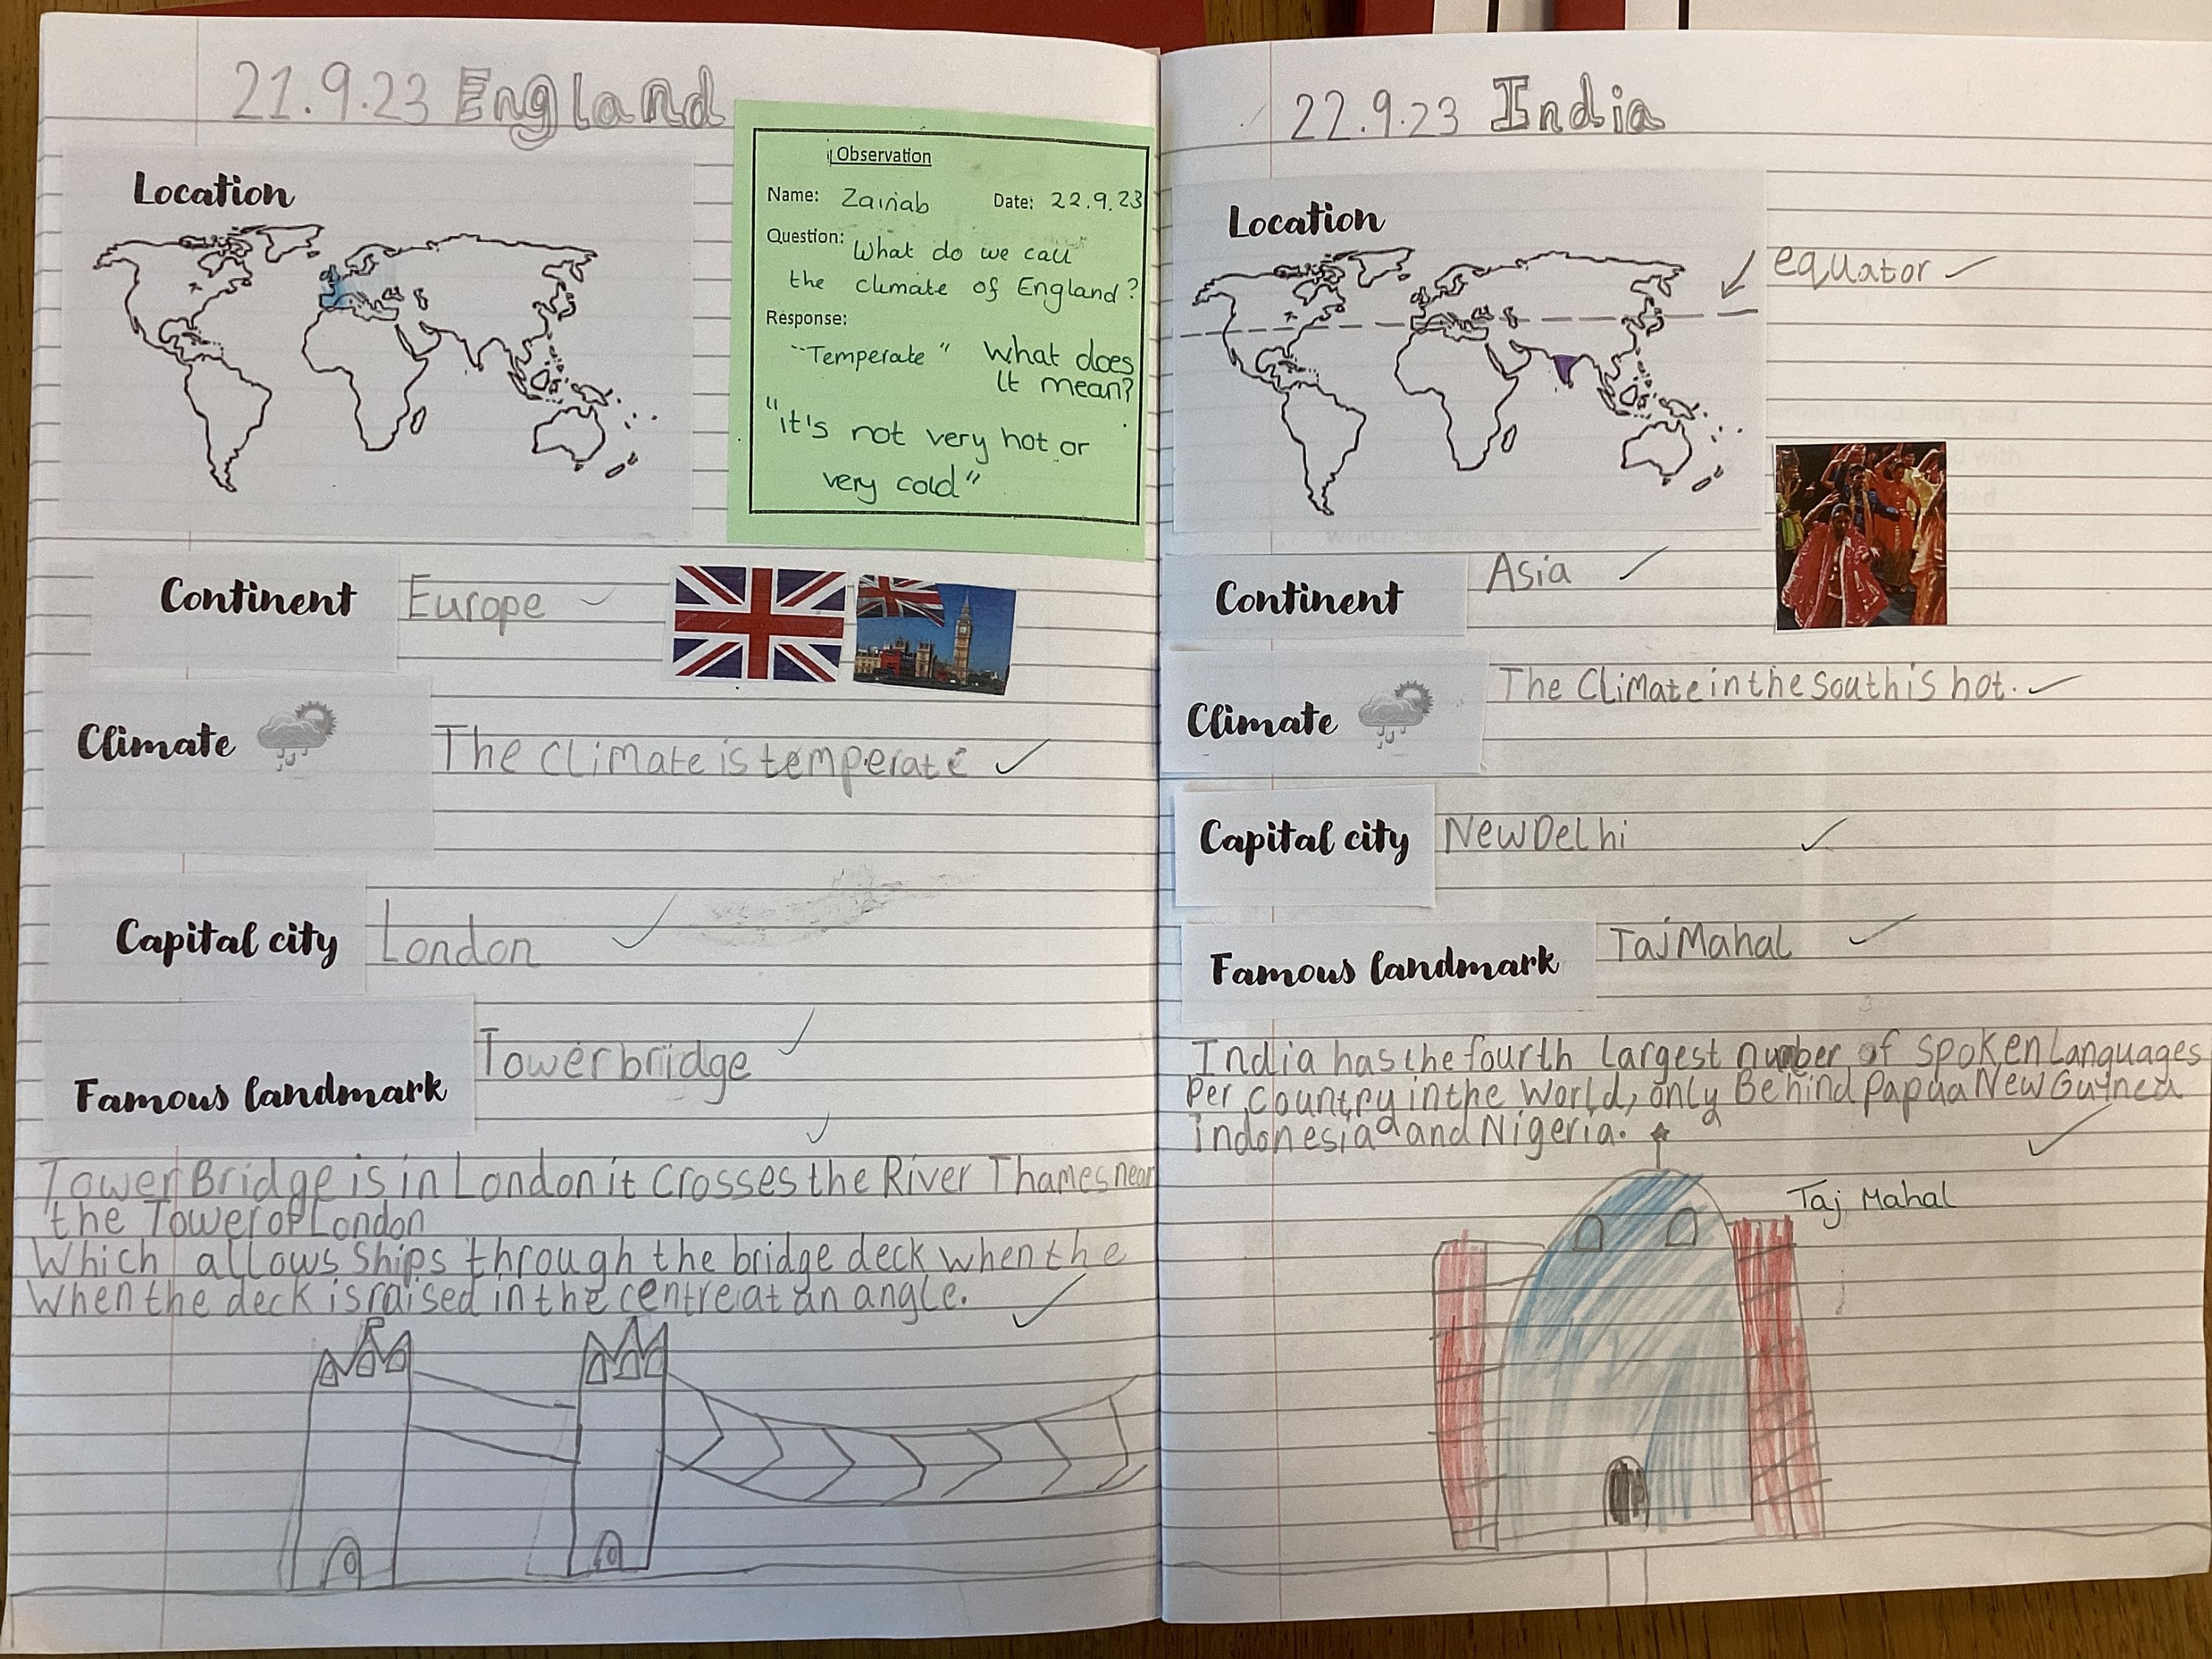 21.9.23 England
Location
Observation
Name: Zainab Date: 22.9.23
Question: What do we call
the climate of England?
Response:
"Temperate" What does
it mean?
"it's not very hot or
very cold"
Continent Europe
Climate The climate is temperate
Capital city London
Famous landmark Tower bridge
Tower Bridge is in London it crosses the River Thames near
the Tower of London
Which allows Ships through the bridge deck when the
When the deck is raised in the centre at an angle.
22.9.23 India
Location
equator
Continent Asia
Climate The Climate in the south is hot.
Capital city New Delhi
Famous landmark Taj Mahal
India has the fourth largest number of spoken languages
Per country in the World, only Behind Papua New Guinea
indonesia and Nigeria.
Taj Mahal